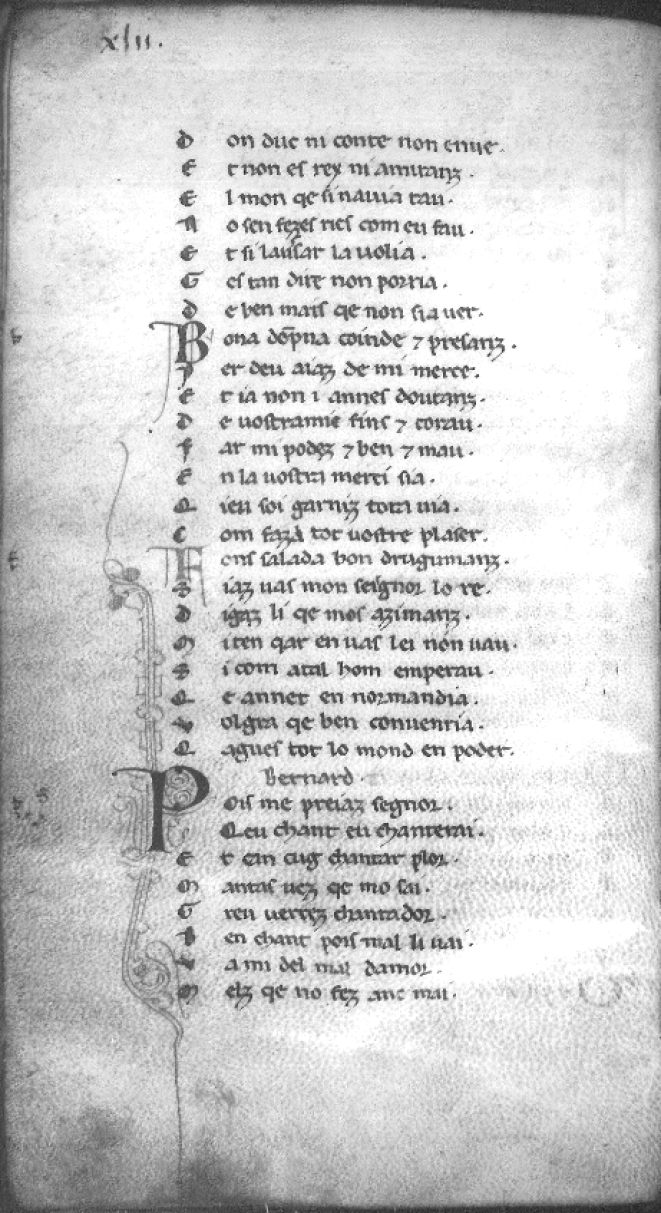 xlii.
Don duc ni conte non enue.
Et non es rey ni amiranz.
El mon qe si nauia tau.
Ao sen fezes rics com eu fau.
Et si lausar la uolia.
Ges tan dire non porria.
De ben mais qe non sia uer.
Bona dōpna coinde ⁊ presanz.
Per deu aiaz de mi merce.
Et ia non i annes doutanz.
De uostramie fins ⁊ corau.
Far mi podez ⁊ ben ⁊ mau.
En la uostra merci sia.
Qieu soi garniz tota uia.
Com faza tot uostre plaser.
Fons salada bon drugumanz.
Siaz uas mon seignor lo re.
Digaz li qe mos azimanz.
Mi ten qar en uas lei non uau.
Si com atal hom emperau.
Qe annet en normandia.
Volgra qe ben conuenria.
Qagues tot lo mond en poder.
Bernard.
Pois me preiaz segnor.
Qeu chant eu chanterai.
Et can cug chantar plor.
Mantas uez qe mo sai.
Greu uerrez chantador.
Ben chant pois mal li uai.
Va mi del mal damor.
Melz qe no fez anc mai.